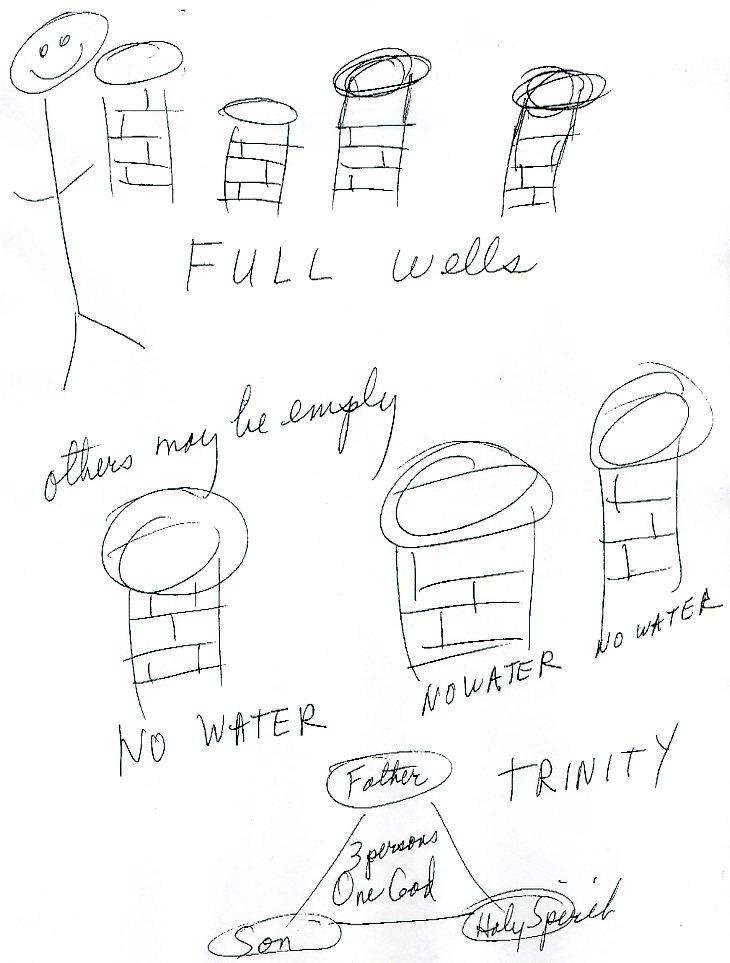 FULL wells
others may be empty
NO WATER
NO WATER
NO WATER
TRINITY
Father
3 persons
One God
Son
Holy Spirit